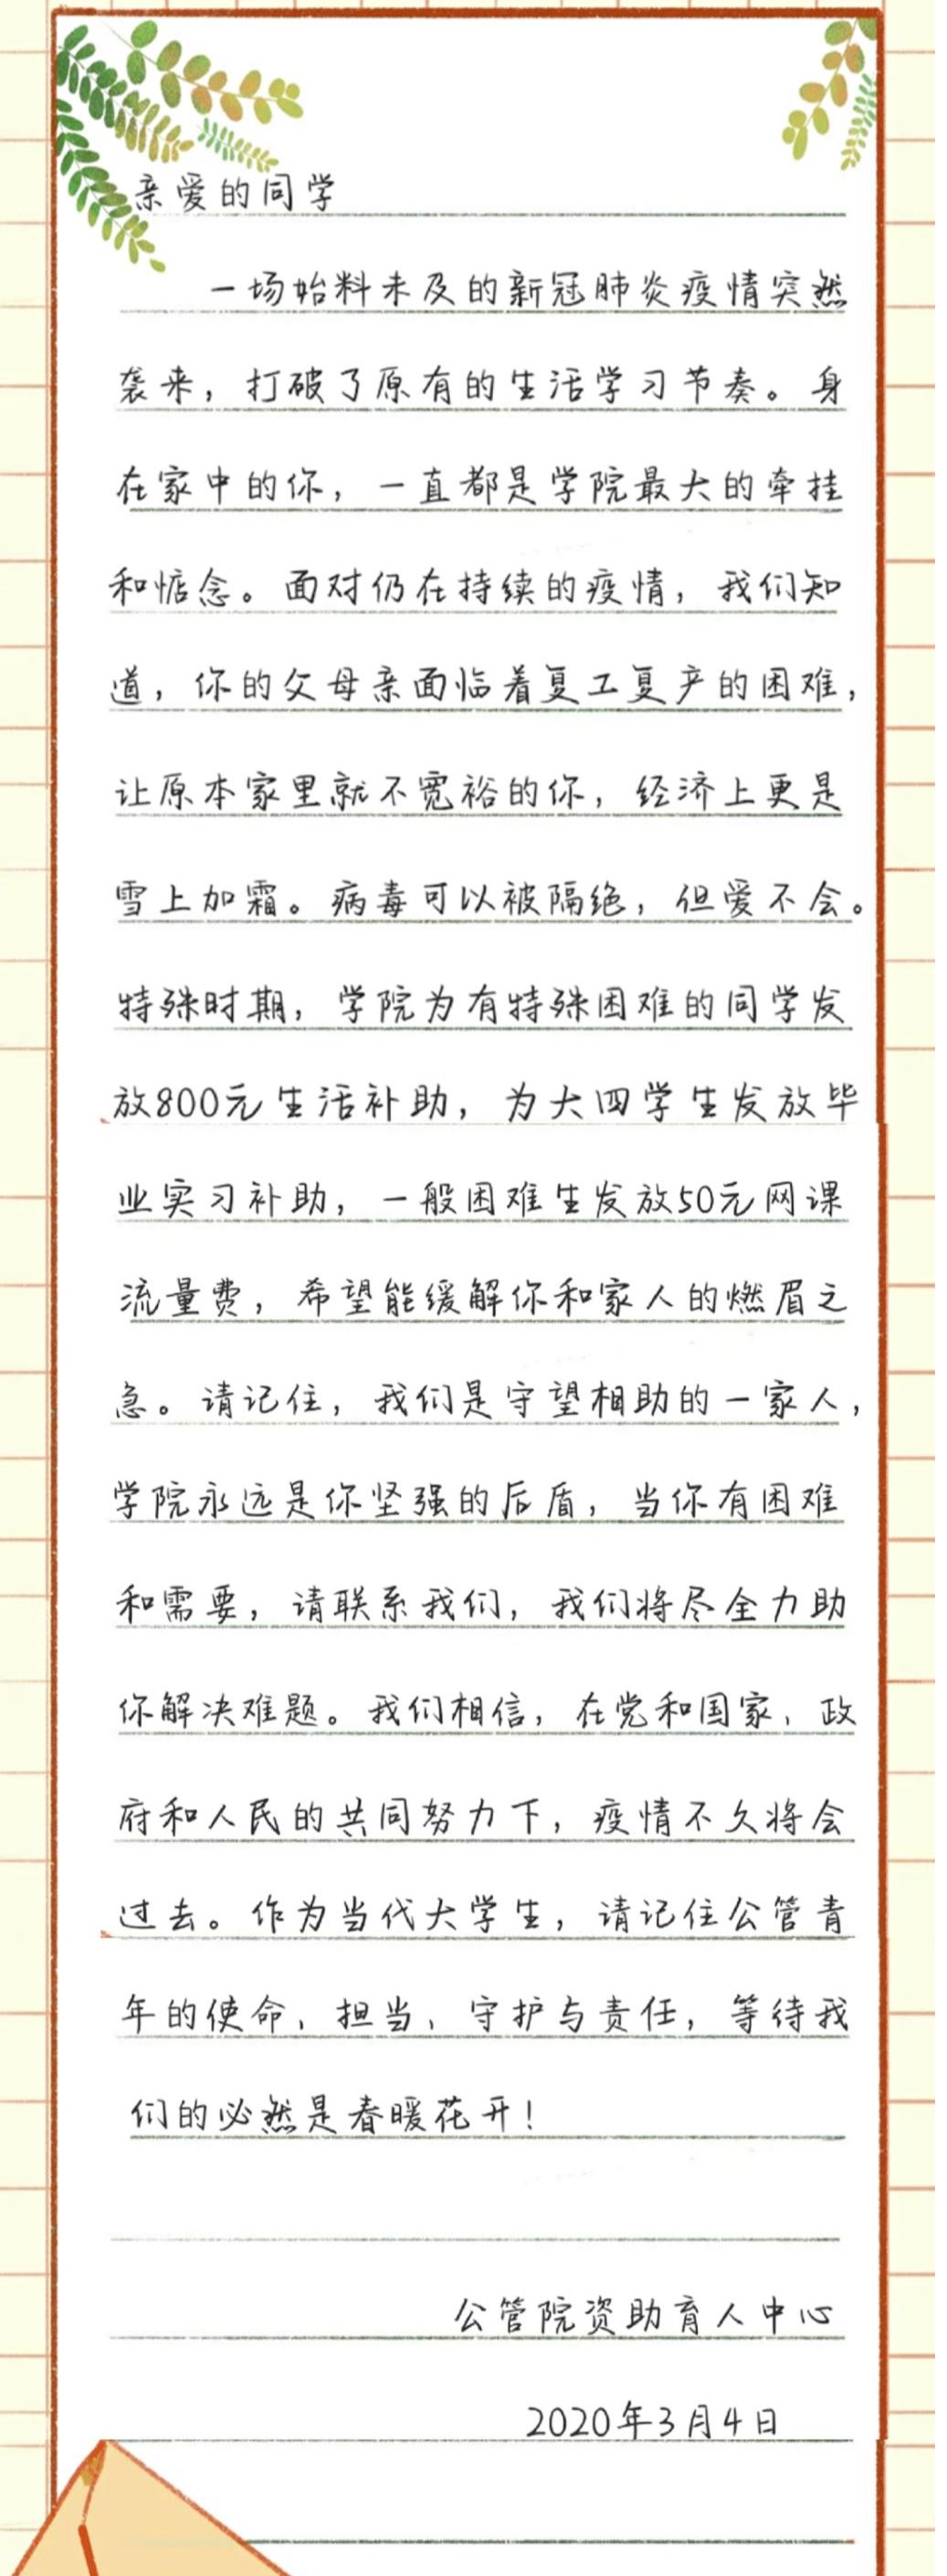 亲爱的同学
一场始料未及的新冠肺炎疫情突然
袭来，打破了原有的生活学习节奏。身
在家中的你，一直都是学院最大的牵挂
和惦念。面对仍在持续的疫情，我们知
道，你的父母亲面临着复工复产的困难，
让原本家里就不宽裕的你，经济上更是
雪上加霜。病毒可以被隔绝，但爱不会。
特殊时期，学院为有特殊困难的同学发
放800元生活补助，为大四学生发放毕
业实习补助，一般困难生发放50元网课
流量费，希望能缓解你和家人的燃眉之
急。请记住，我们是守望相助的一家人，
学院永远是你坚强的后盾，当你有困难
和需要，请联系我们，我们将尽全力助
你解决难题。我们相信，在党和国家、政
府和人民的共同努力下，疫情不久将会
过去。作为当代大学生，请记住公管青
年的使命、担当、守护与责任，等待我
们的必然是春暖花开！
公管院资助育人中心
2020年3月4日